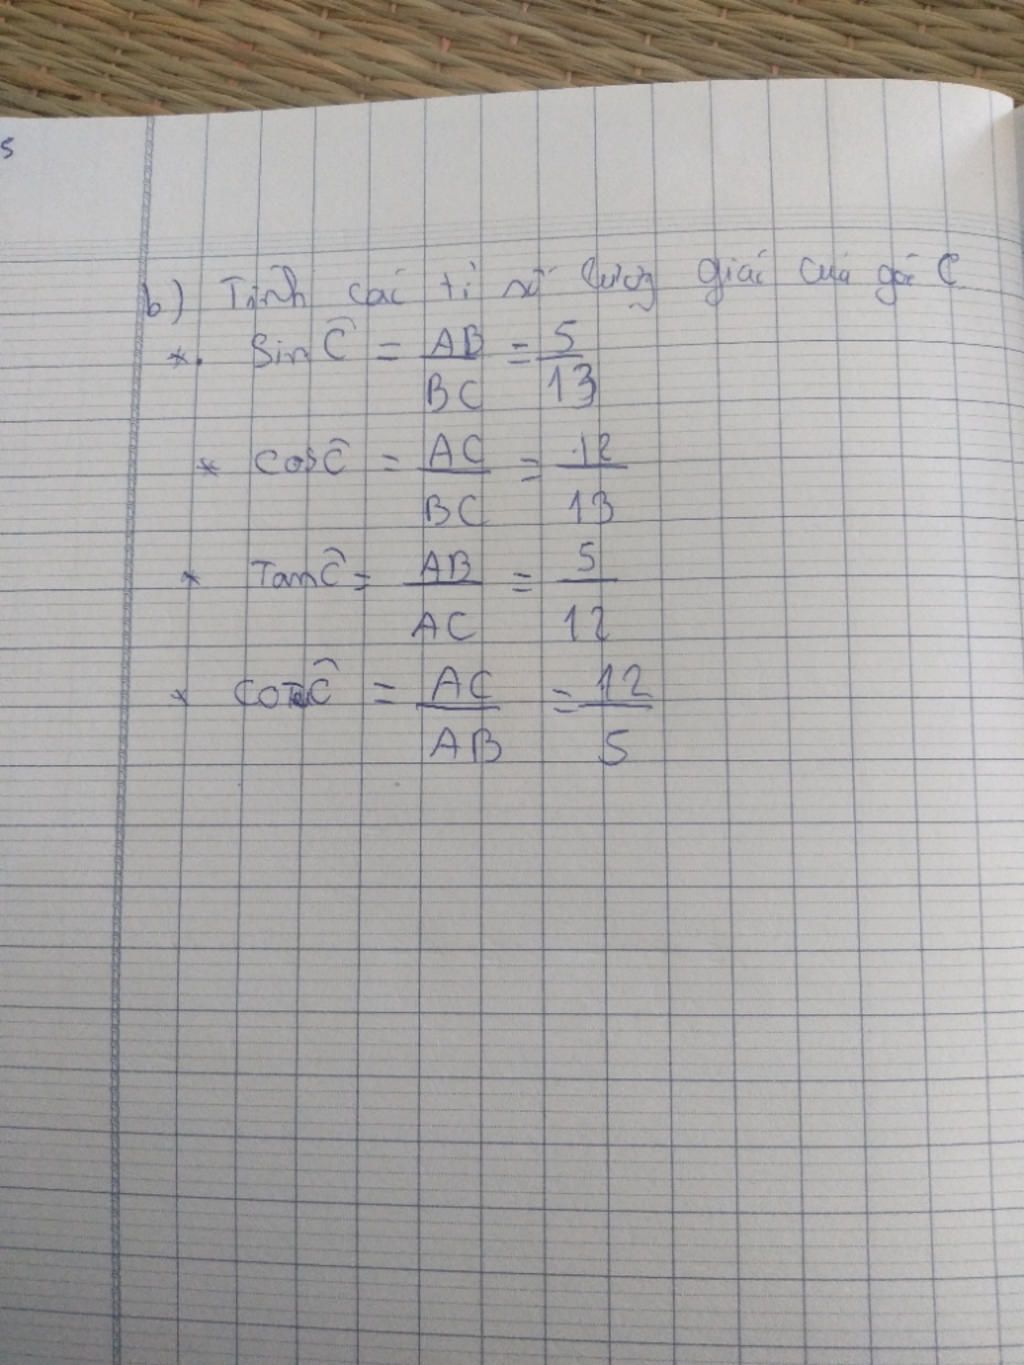 5
b) Tính các tỉ số lượng giác của góc C
*. Sin Ĉ = AB/BC = 5/13
* cosĈ = AC/BC = 12/13
* TanĈ = AB/AC = 5/12
* cotĈ = AC/AB = 12/5